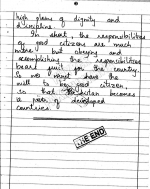 high planes of dignity and
discipline.
In short, the responsibilities
of good citizens are much
more, but obeying and
accomplishing the responsibilities
board suit for the country.
So we must have the
will to be good citizen
so that becomes
a part of developed
countries.
THE END